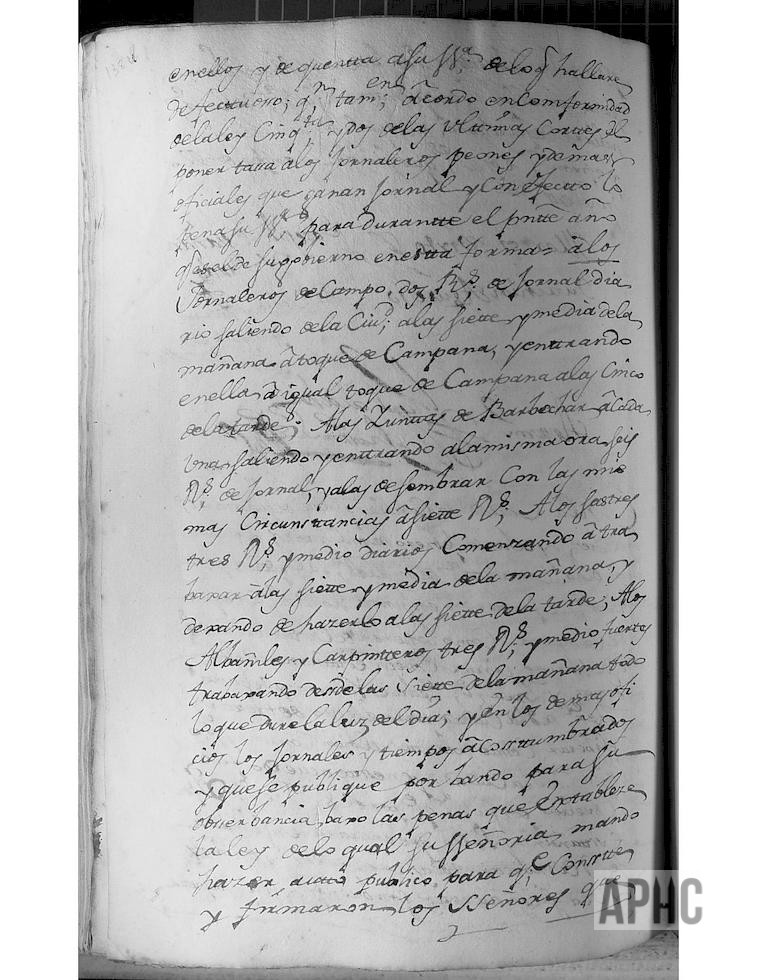 enellos y de quentta a su Sª de lo q hallare
defectuosso; qn tam; en acordo en Comformidad
de la ley Cinqta y dos de las Ulttimas Corttes, el
poner tassa a los Jornaleros peones y demas
oficiales que ganan Jornal y Con efectto lo
su Sª para durantte el pntte año
q es el de su govierno en estta forma = a los
Jornaleros de Campo, dos Rs de Jornal dia
rio saliendo de la Ciud; a las siette y media de la
mañana a toque de Campana, y enttrando
en ella a igual toque de Campana a las Cinco
de la tarde. A las Junttas de Barbechar a Cada
una saliendo y enttrando a la misma ora seis
Rs de Jornal, y a las de sembrar Con las mis
mas Circunstancias a siette Rs; A los sastres
tres Rs y medio diarios Comenzando a tra
baxar a las siette y media de la mañana, y
dexando de hazerlo a las siette de la tarde; A los
Albañiles y Carpintteros tres Rs y medio fuertes
trabaxando desde las siette de la mañana todo
lo que dure la luz del dia; y en los demas ofi
cios los Jornales y tiempos acosttumbrados
y que se publique por bando para su
observancia baxo las penas que entableze
la ley de lo qual su Señoria mando
hazer autto publico para qe Constte
y firmaron los SSeñores que
APHC